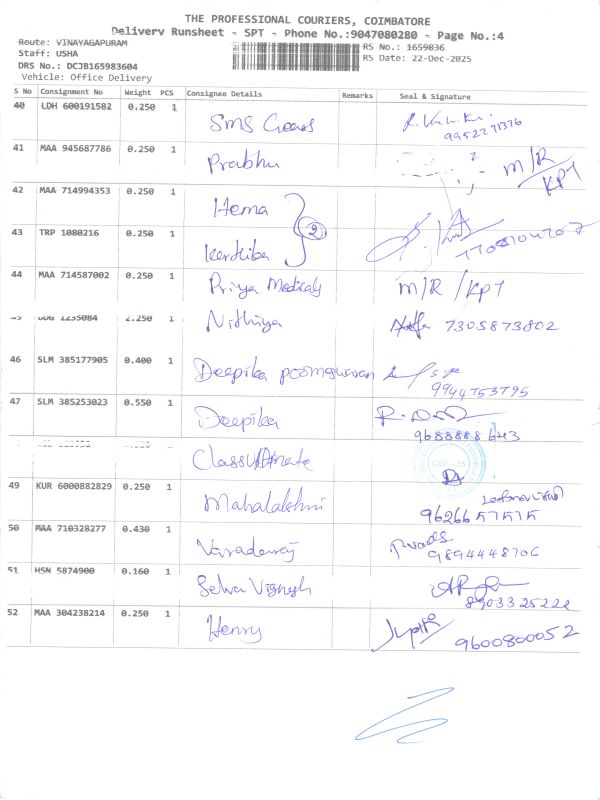 THE PROFESSIONAL COURIERS, COIMBATORE
Delivery Runsheet - SPT - Phone No.:9047080280 - Page No.:4
Route: VINAYAGAPURAM
Staff: USHA
DRS No.: DCJB165983604
Vehicle: Office Delivery
RS No.: 1659836
RS Date: 22-Dec-2025
S No Consignment No Weight PCS Consignee Details Remarks Seal & Signature
40 LDH 600191582 0.250 1 SMS Gears
9952271376
41 MAA 945687786 0.250 1 Prabhu M/R KPT
42 MAA 714994353 0.250 1 Hema
2
43 TRP 1080216 0.250 1 Karthika
44 MAA 714587002 0.250 1 Priya Medicals M/R / KPT
1 Nithiya 7305873802
46 SLM 385177905 0.400 1 Deepika
9944753795
47 SLM 385253023 0.550 1 Deepika
49 KUR 6000882829 0.250 1 Mahalakshmi
50 MAA 710328277 0.430 1
9894448706
51 HSN 5874900 0.160 1 Selva Vignesh
8903325222
52 MAA 304238214 0.250 1 Henry
9600800052